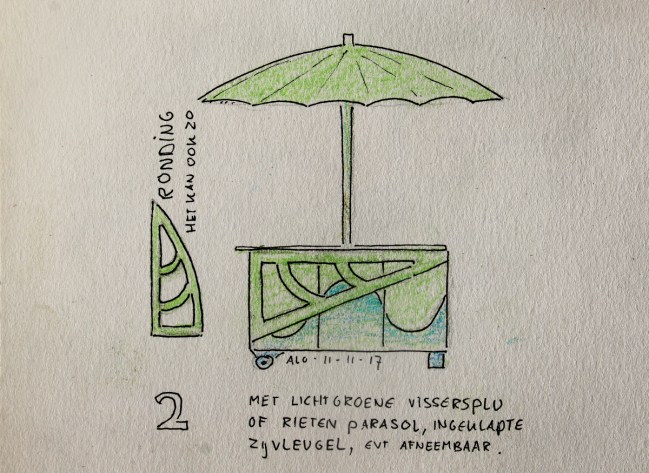 RONDING
HET KAN OOK ZO
ALO-11-11-17
2
MET LICHTGROENE VISSERSPLU
OF RIETEN PARASOL, INGEKLAPTE
ZijVLEUGEL, EVT AFNEEMBAAR.